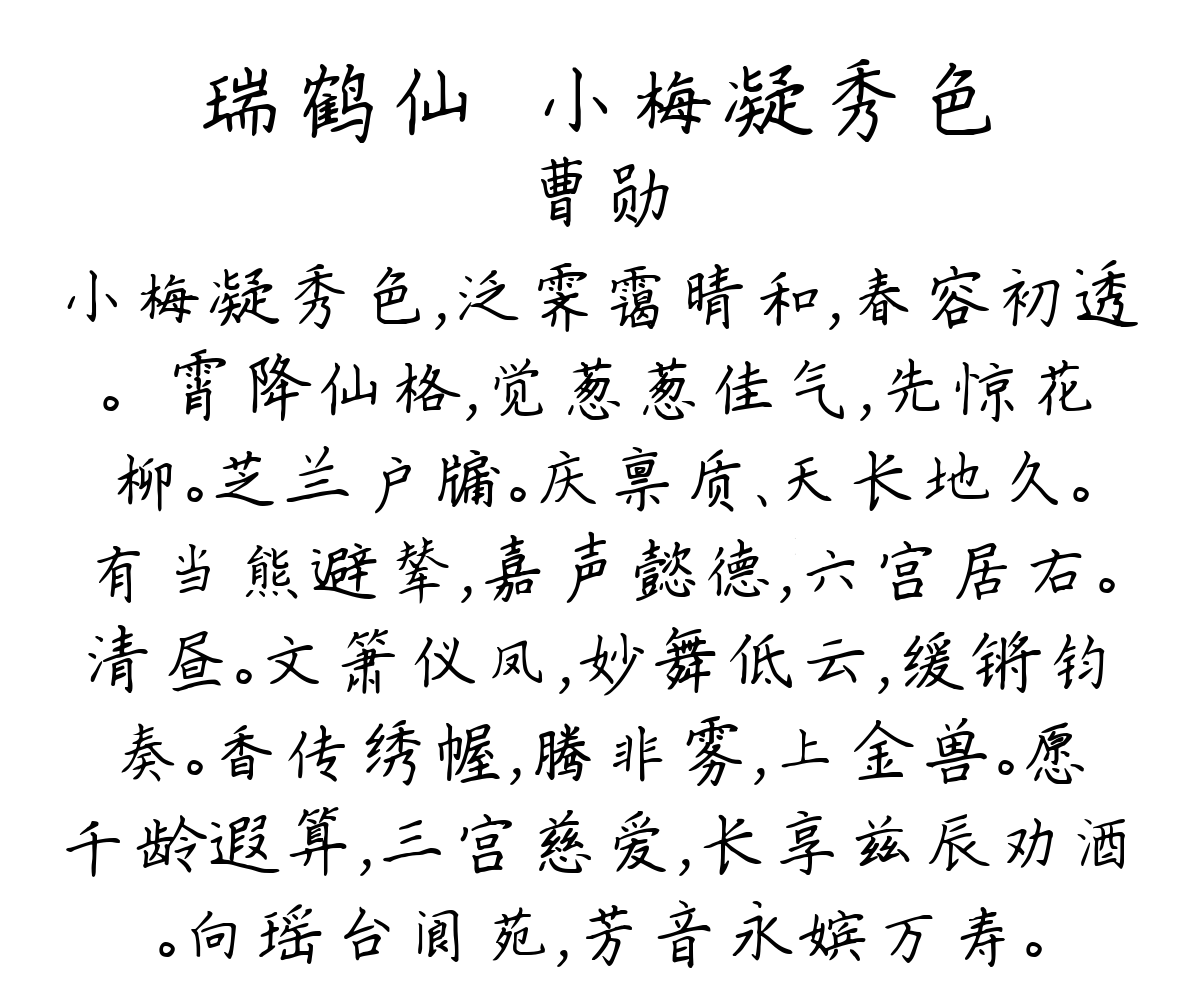 瑞鹤仙 小梅凝秀色
曹勋
小梅凝秀色,泛霁霭晴和,春容初透
。霄降仙格,觉葱葱佳气,先惊花
柳。芝兰户牖。庆禀质、天长地久。
有当熊避辇,嘉声懿德,六宫居右。
清昼。文箫仪凤,妙舞低云,缓锵钧
奏。香传绣幄,腾非雾,上金兽。愿
千龄遐算,三宫慈爱,长享兹辰劝酒
。向瑶台阆苑,芳音永嫔万寿。